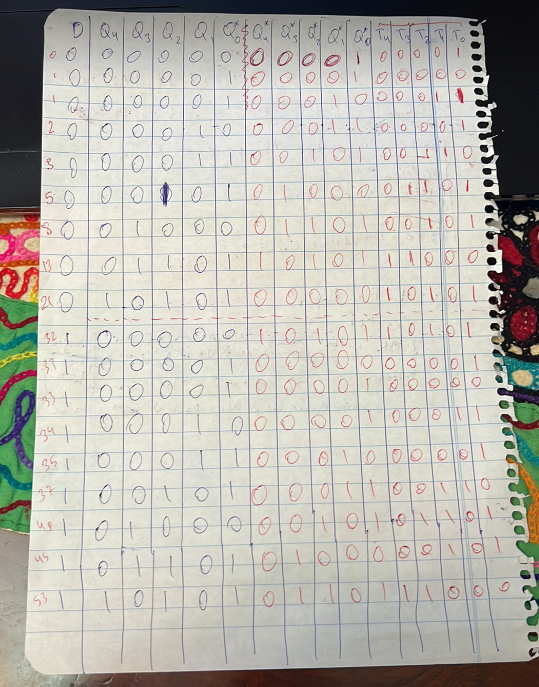 D Q4 Q3 Q2 Q1 Q0 Q4* Q3* Q2* Q1* Q0* T4 T3 T2 T1 T0
0 0 0 0 0 0 0 0 0 0 0 1 0 0 0 0 1
1 0 0 0 0 0 1 0 0 0 0 1 0 0 0 0 0
1 0 0 0 0 0 1 0 0 0 1 0 0 0 0 1 1
2 0 0 0 0 1 0 0 0 0 1 1 0 0 0 0 1
3 0 0 0 0 1 1 0 0 1 0 1 0 0 1 1 0
5 0 0 0 1 0 1 0 1 0 0 0 0 1 1 0 1
8 0 0 1 0 0 0 0 1 1 0 1 0 0 1 0 1
13 0 0 1 1 0 1 1 0 1 0 1 1 1 0 0 0
21 0 1 0 1 0 1 0 0 0 0 0 1 0 1 0 1
32 1 0 0 0 0 0 1 0 1 0 1 1 0 1 0 1
33 1 0 0 0 0 1 0 0 0 0 0 0 0 0 0 1
33 1 0 0 0 0 1 0 0 0 0 1 0 0 0 0 0
34 1 0 0 0 1 0 0 0 0 0 1 0 0 0 1 1
35 1 0 0 0 1 1 0 0 0 1 0 0 0 0 0 1
37 1 0 0 1 0 1 0 0 0 1 1 0 0 1 1 0
40 1 0 1 0 0 0 0 0 1 0 1 0 1 1 0 1
45 1 0 1 1 0 1 0 1 0 0 0 0 0 1 0 1
53 1 1 0 1 0 1 0 1 1 0 1 1 1 0 0 0